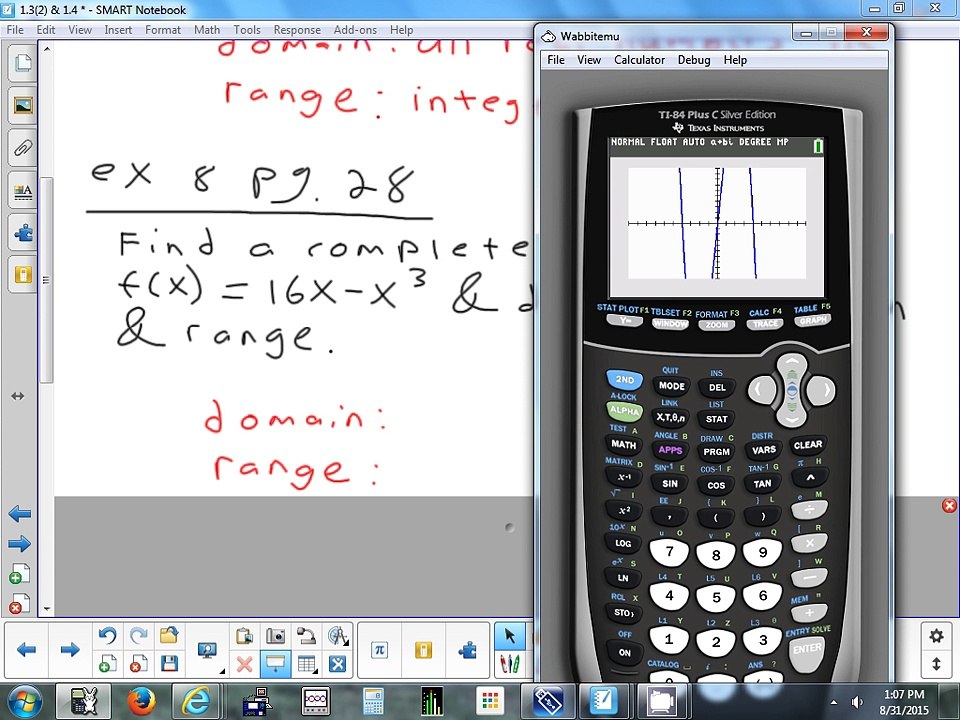 1.3(2) & 1.4 * - SMART Notebook
File Edit View Insert Format Math Tools Response Add-ons Help
domain: all
range: integ
ex 8 pg. 28
Find a complete
f(x) = 16x-x³ &
& range.
domain:
range:
Wabbitemu
File View Calculator Debug Help
TI-84 Plus C Silver Edition
TEXAS INSTRUMENTS
NORMAL FLOAT AUTO a+bi DEGREE MP
STAT PLOT F1 TBLSET F2 FORMAT F3 CALC F4 TABLE F5
Y= WINDOW ZOOM TRACE GRAPH
QUIT INS
2ND MODE DEL
A-LOCK LINK LIST
ALPHA X,T,θ,n STAT
TEST A ANGLE B DRAW C DISTR
MATH APPS PRGM VARS CLEAR
MATRIX D SIN⁻¹ E COS⁻¹ F TAN⁻¹ G π H
x⁻¹ SIN COS TAN ^
√ I EE J { K } L e M
x² , ( ) ÷
10ˣ N u O v P w Q [ R
LOG 7 8 9 ×
eˣ S L4 T L5 U L6 V ] W
LN 4 5 6 −
RCL X L1 Y L2 Z L3 θ MEM "
STO› 1 2 3 +
OFF CATALOG : ANS ? ENTRY SOLVE
ON ENTER
1:07 PM
8/31/2015